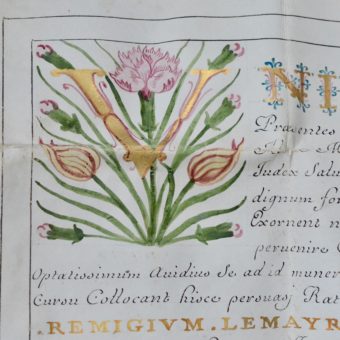 V NI
Praesentes
Iudex Salu
dignum fo
Exornent n
peruenire
Optatissimum Auidius Se ad id muner
Cursu Collocant hisce persuasj Rat
.REMIGIVM.LEMAYR